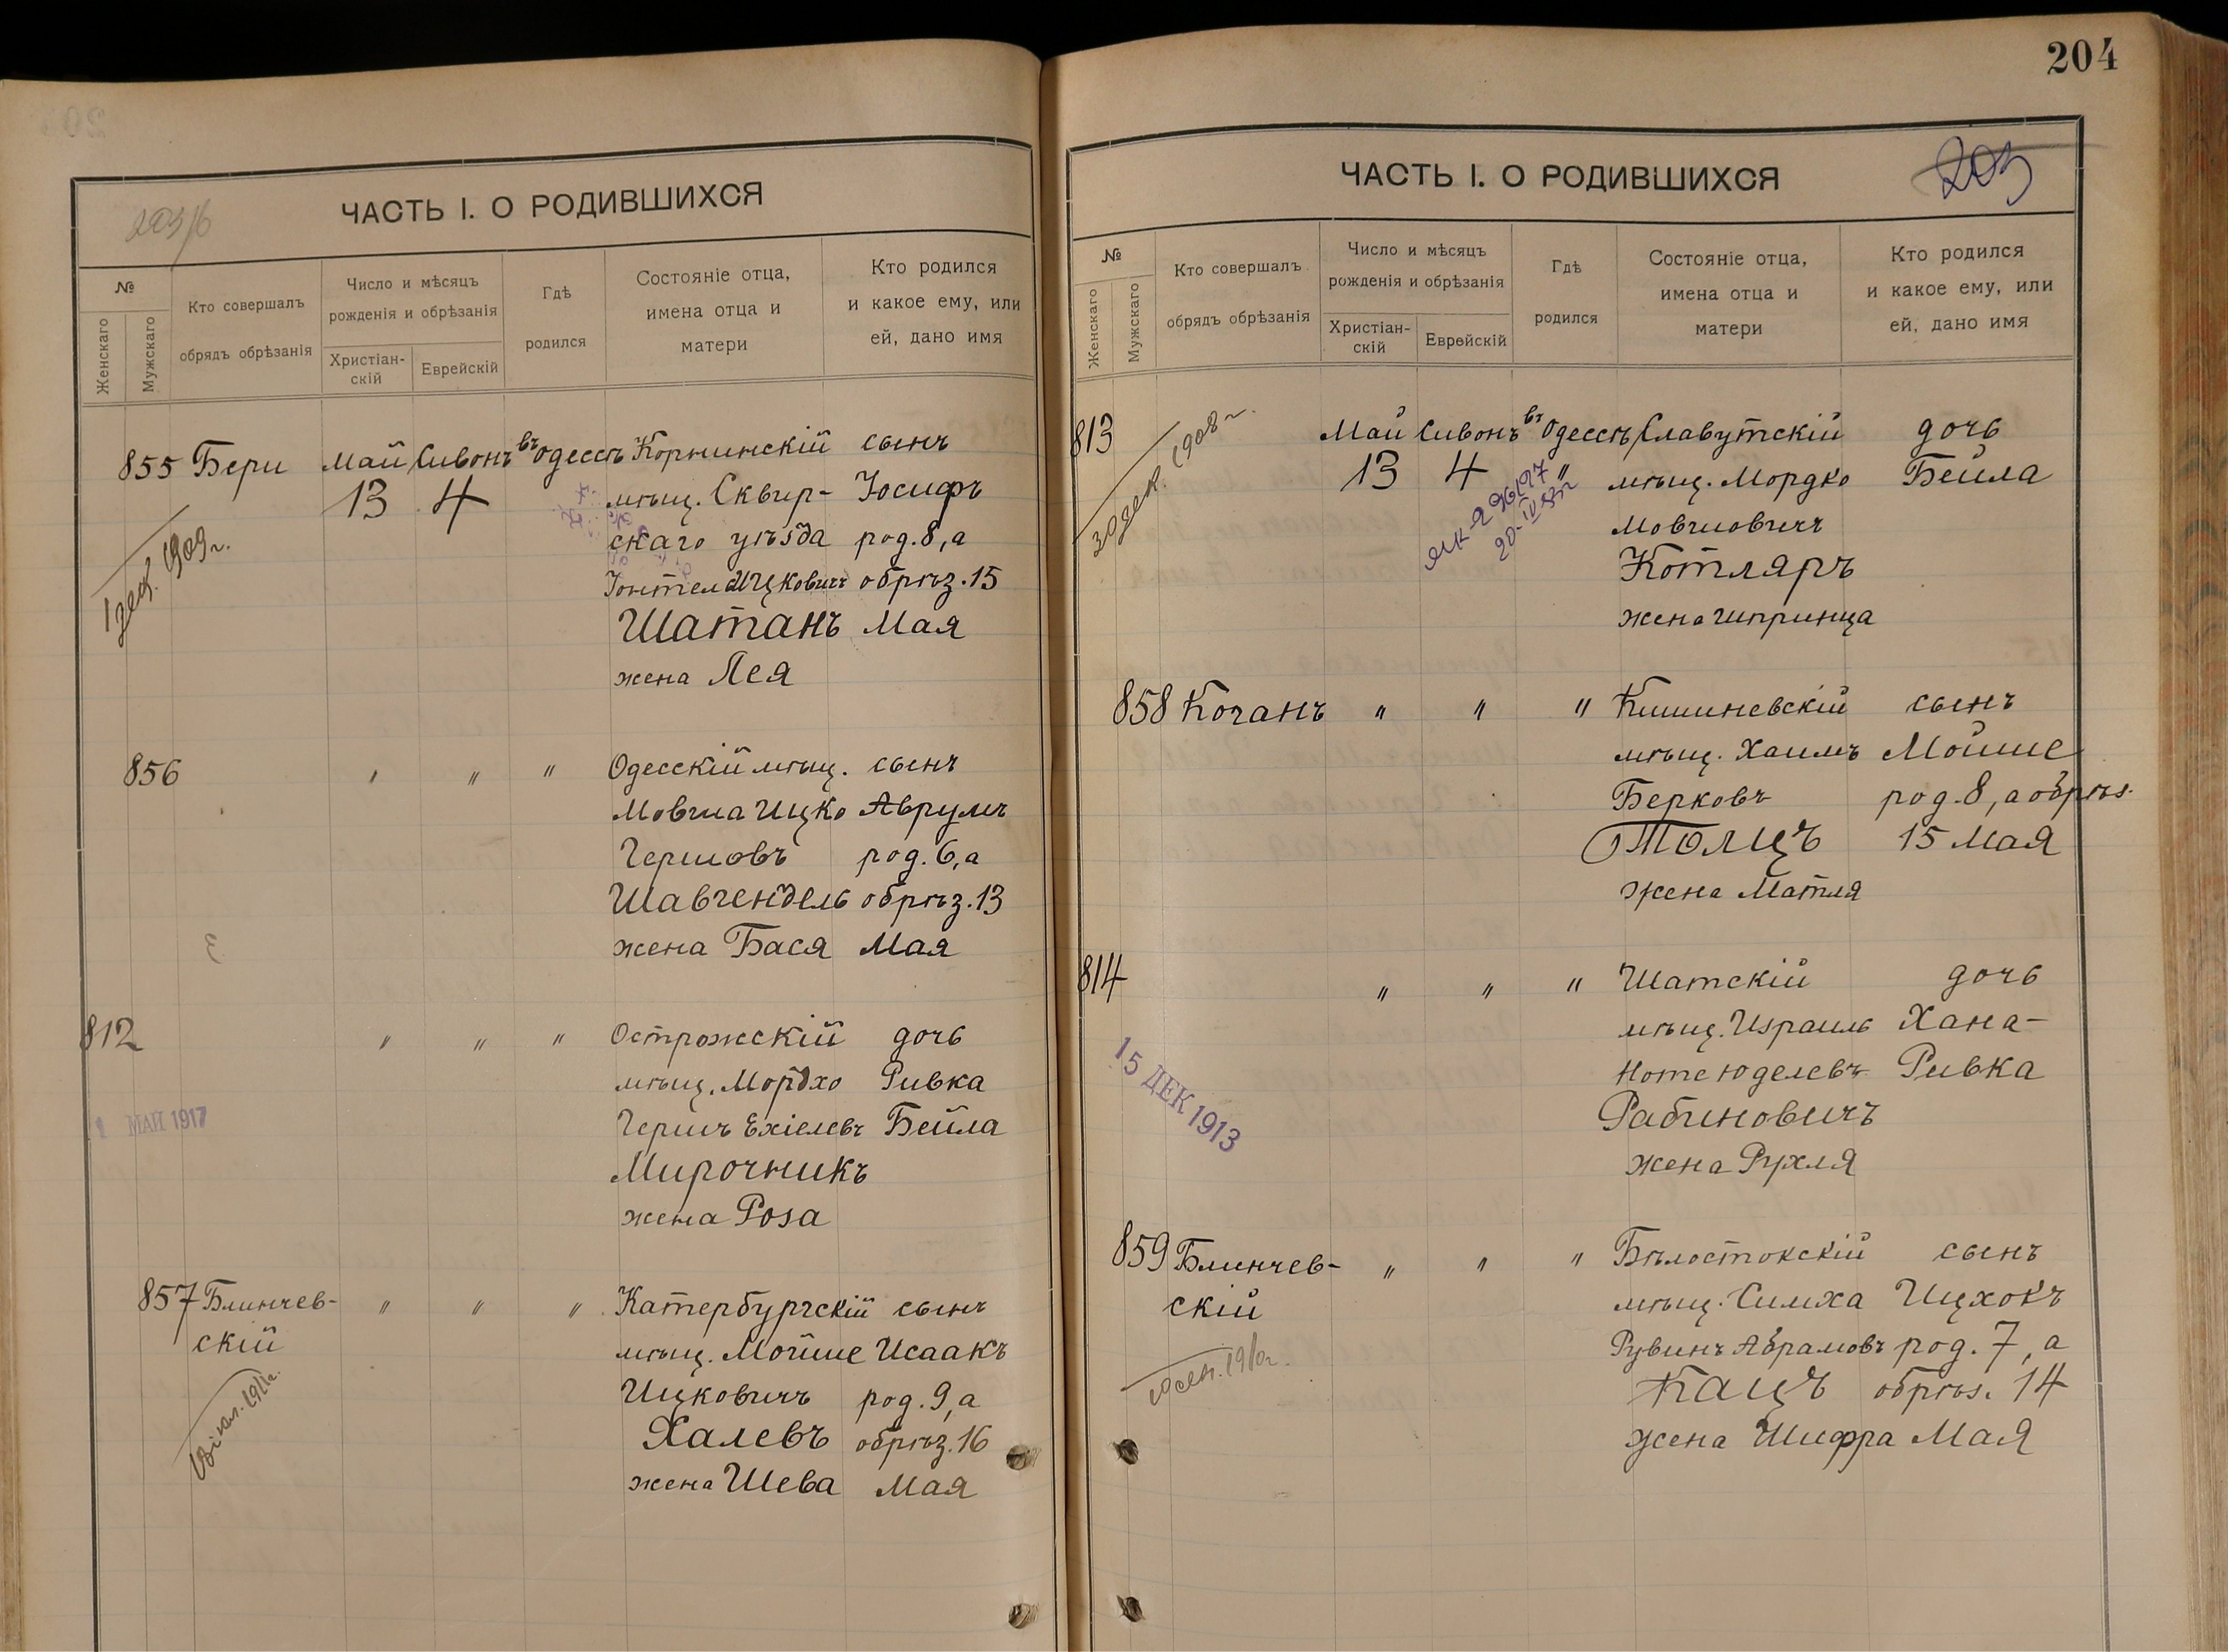 204
ЧАСТЬ I. О РОДИВШИХСЯ
№
Женскаго
Мужскаго
Кто совершалъ
обрядъ обрѣзанія
Число и мѣсяцъ
рожденія и обрѣзанія
Христіан-
скій
Еврейскій
Гдѣ
родился
Состояніе отца,
имена отца и
матери
Кто родился
и какое ему, или
ей, дано имя
855 Бери Май Сивонъ въ Одессѣ Корнинскій сынъ
13 4 мѣщ. Сквир- Іосифъ
скаго уѣзда род. 8, а
1 дек. 1909 г.
Іонтел Ицковичъ обрѣз. 15
Шатанъ Мая
жена Лея
856 " " " Одесскій мѣщ. сынъ
Мовша Ицко Аврумъ
Гершовъ род. 6, а
Шавгендель обрѣз. 13
жена Бася Мая
812 " " " Острожскій дочь
мѣщ. Мордхо Ривка
1 МАЙ 1917
Гершъ Ехіелевъ Бейла
Мирочникъ
жена Роза
857 Блинчев- " " " Катербургскій сынъ
скій мѣщ. Мойше Исаакъ
Ицковичъ род. 9, а
Халевъ обрѣз. 16
жена Шева Мая
ЧАСТЬ I. О РОДИВШИХСЯ
203
№
Женскаго
Мужскаго
Кто совершалъ
обрядъ обрѣзанія
Число и мѣсяцъ
рожденія и обрѣзанія
Христіан-
скій
Еврейскій
Гдѣ
родился
Состояніе отца,
имена отца и
матери
Кто родился
и какое ему, или
ей, дано имя
813 Май Сивонъ въ Одессѣ Славутскій дочь
30 дек. 1908 г.
13 4 " мѣщ. Мордко Бейла
Мовшовичъ
Котляръ
жена Шпринца
858 Коганъ " " " Кишиневскій сынъ
мѣщ. Хаимъ Мойше
Берковъ род. 8, а обрѣз.
Толцъ 15 Мая
жена Матля
814 " " " Шатскій дочь
мѣщ. Израиль Хана-
15 ДЕК 1913
Ноте Юделевъ Ривка
Рабиновичъ
жена Рухля
859 Блинчев- " " " Бѣлостокскій сынъ
скій мѣщ. Симха Ицхокъ
Рувинъ Абрамовъ род. 7, а
Кацъ обрѣз. 14
жена Шифра Мая